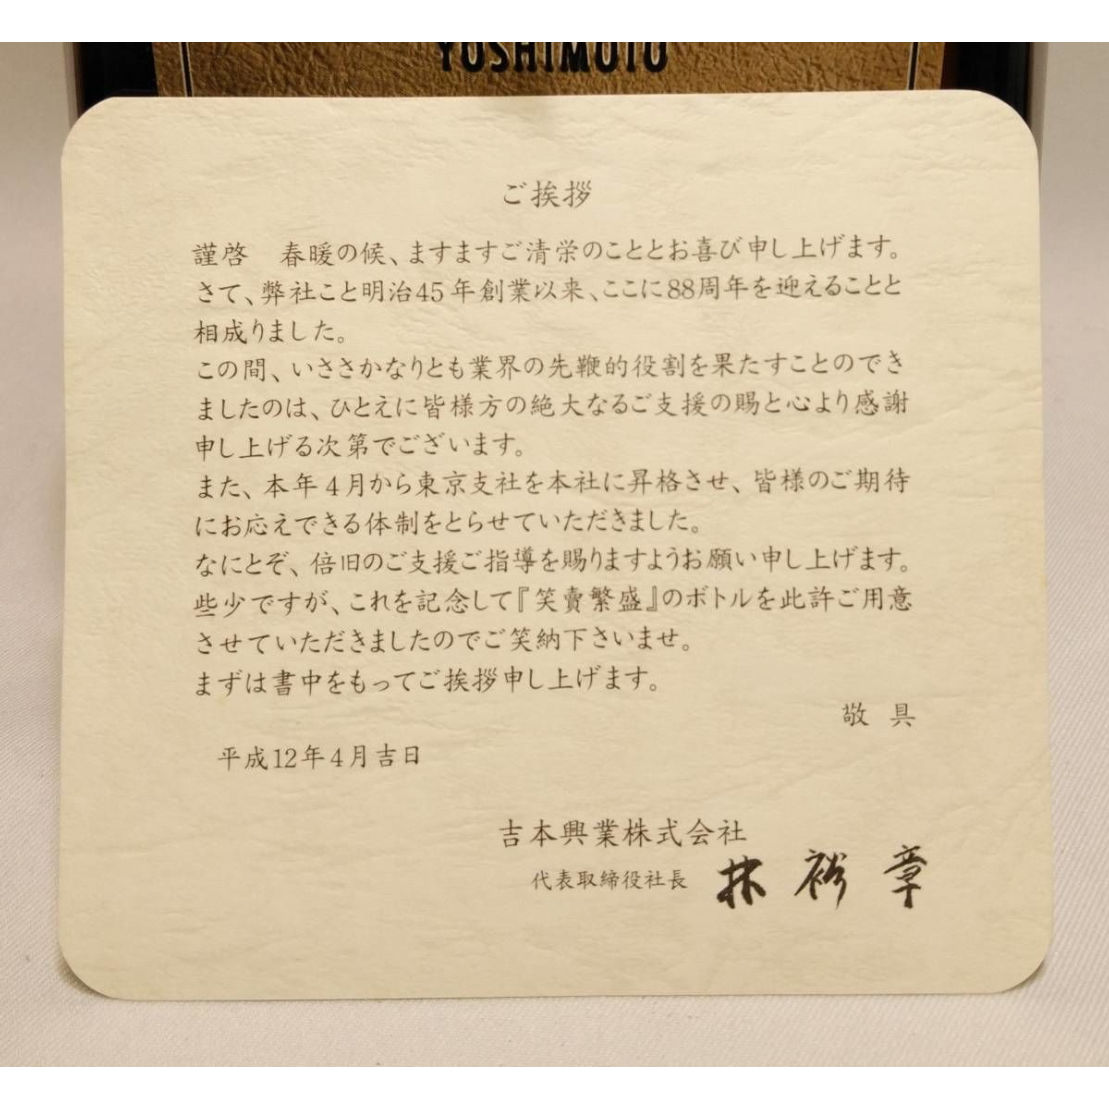 YOSHIMOTO
ご挨拶
謹啓　春暖の候、ますますご清栄のこととお喜び申し上げます。
さて、弊社こと明治45年創業以来、ここに88周年を迎えることと
相成りました。
この間、いささかなりとも業界の先鞭的役割を果たすことのでき
ましたのは、ひとえに皆様方の絶大なるご支援の賜と心より感謝
申し上げる次第でございます。
また、本年4月から東京支社を本社に昇格させ、皆様のご期待
にお応えできる体制をとらせていただきました。
なにとぞ、倍旧のご支援ご指導を賜りますようお願い申し上げます。
些少ですが、これを記念して『笑賣繁盛』のボトルを此許ご用意
させていただきましたのでご笑納下さいませ。
まずは書中をもってご挨拶申し上げます。
敬 具
平成12年4月吉日
吉本興業株式会社
代表取締役社長 林 裕 章